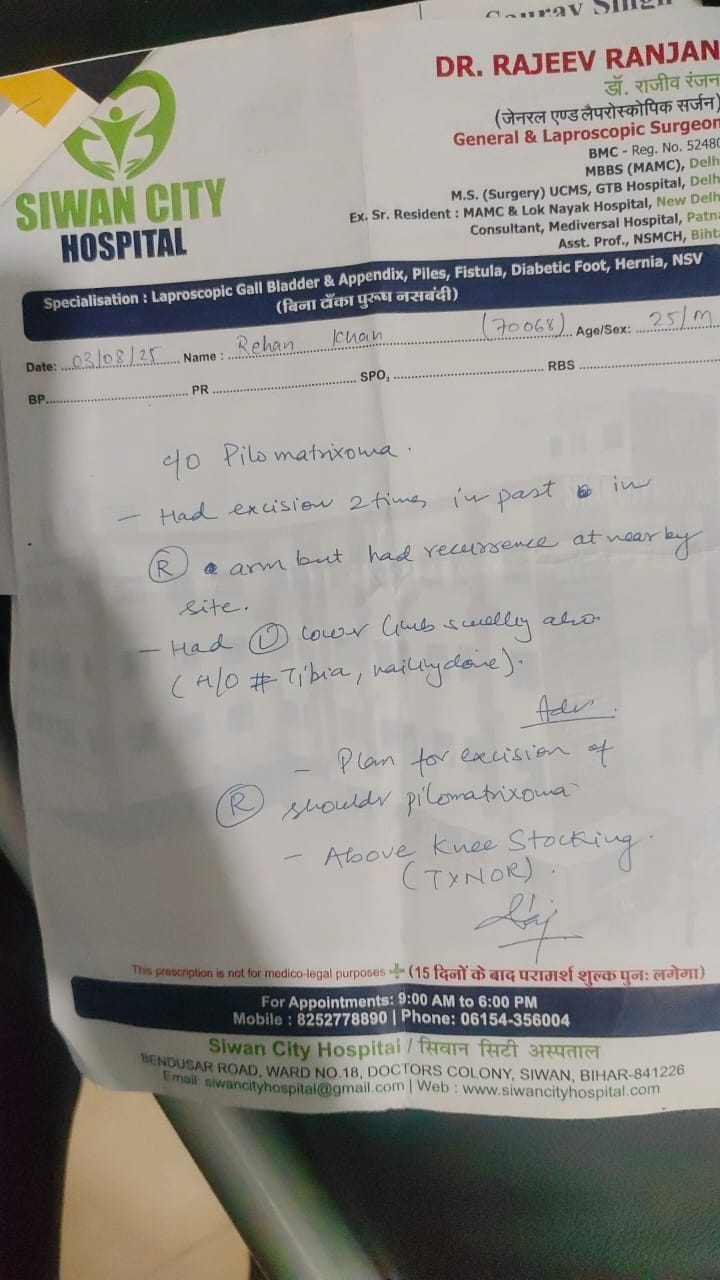 Gourav Singh
SIWAN CITY
HOSPITAL
DR. RAJEEV RANJAN
डॉ. राजीव रंजन
(जेनरल एण्ड लैपरोस्कोपिक सर्जन)
General & Laproscopic Surgeon
BMC - Reg. No. 5248
MBBS (MAMC), Delh
M.S. (Surgery) UCMS, GTB Hospital, Delh
Ex. Sr. Resident : MAMC & Lok Nayak Hospital, New Delh
Consultant, Mediversal Hospital, Patn
Asst. Prof., NSMCH, Biht
Specialisation : Laproscopic Gall Bladder & Appendix, Piles, Fistula, Diabetic Foot, Hernia, NSV
(बिना टाँका पुरूष नसबंदी)
Date: 03/08/25 Name : Rehan Khan (70068) Age/Sex: 25/M
BP PR SPO₂ RBS
c/o Pilomatrixoma.
- Had excision 2 times in past in
(R) arm but had recurrence at near by
site.
- Had lower limb swelling also
(H/O # Tibia, nailing done).
Adv.
- Plan for excision of
(R) shouldr pilomatrixoma
- Above Knee Stocking.
(TYNOR).
This prescription is not for medico-legal purposes (15 दिनों के बाद परामर्श शुल्क पुनः लगेगा)
For Appointments: 9:00 AM to 6:00 PM
Mobile : 8252778890 | Phone: 06154-356004
Siwan City Hospital / सिवान सिटी अस्पताल
BENDUSAR ROAD, WARD NO.18, DOCTORS COLONY, SIWAN, BIHAR-841226
Email: siwancityhospital@gmail.com | Web : www.siwancityhospital.com